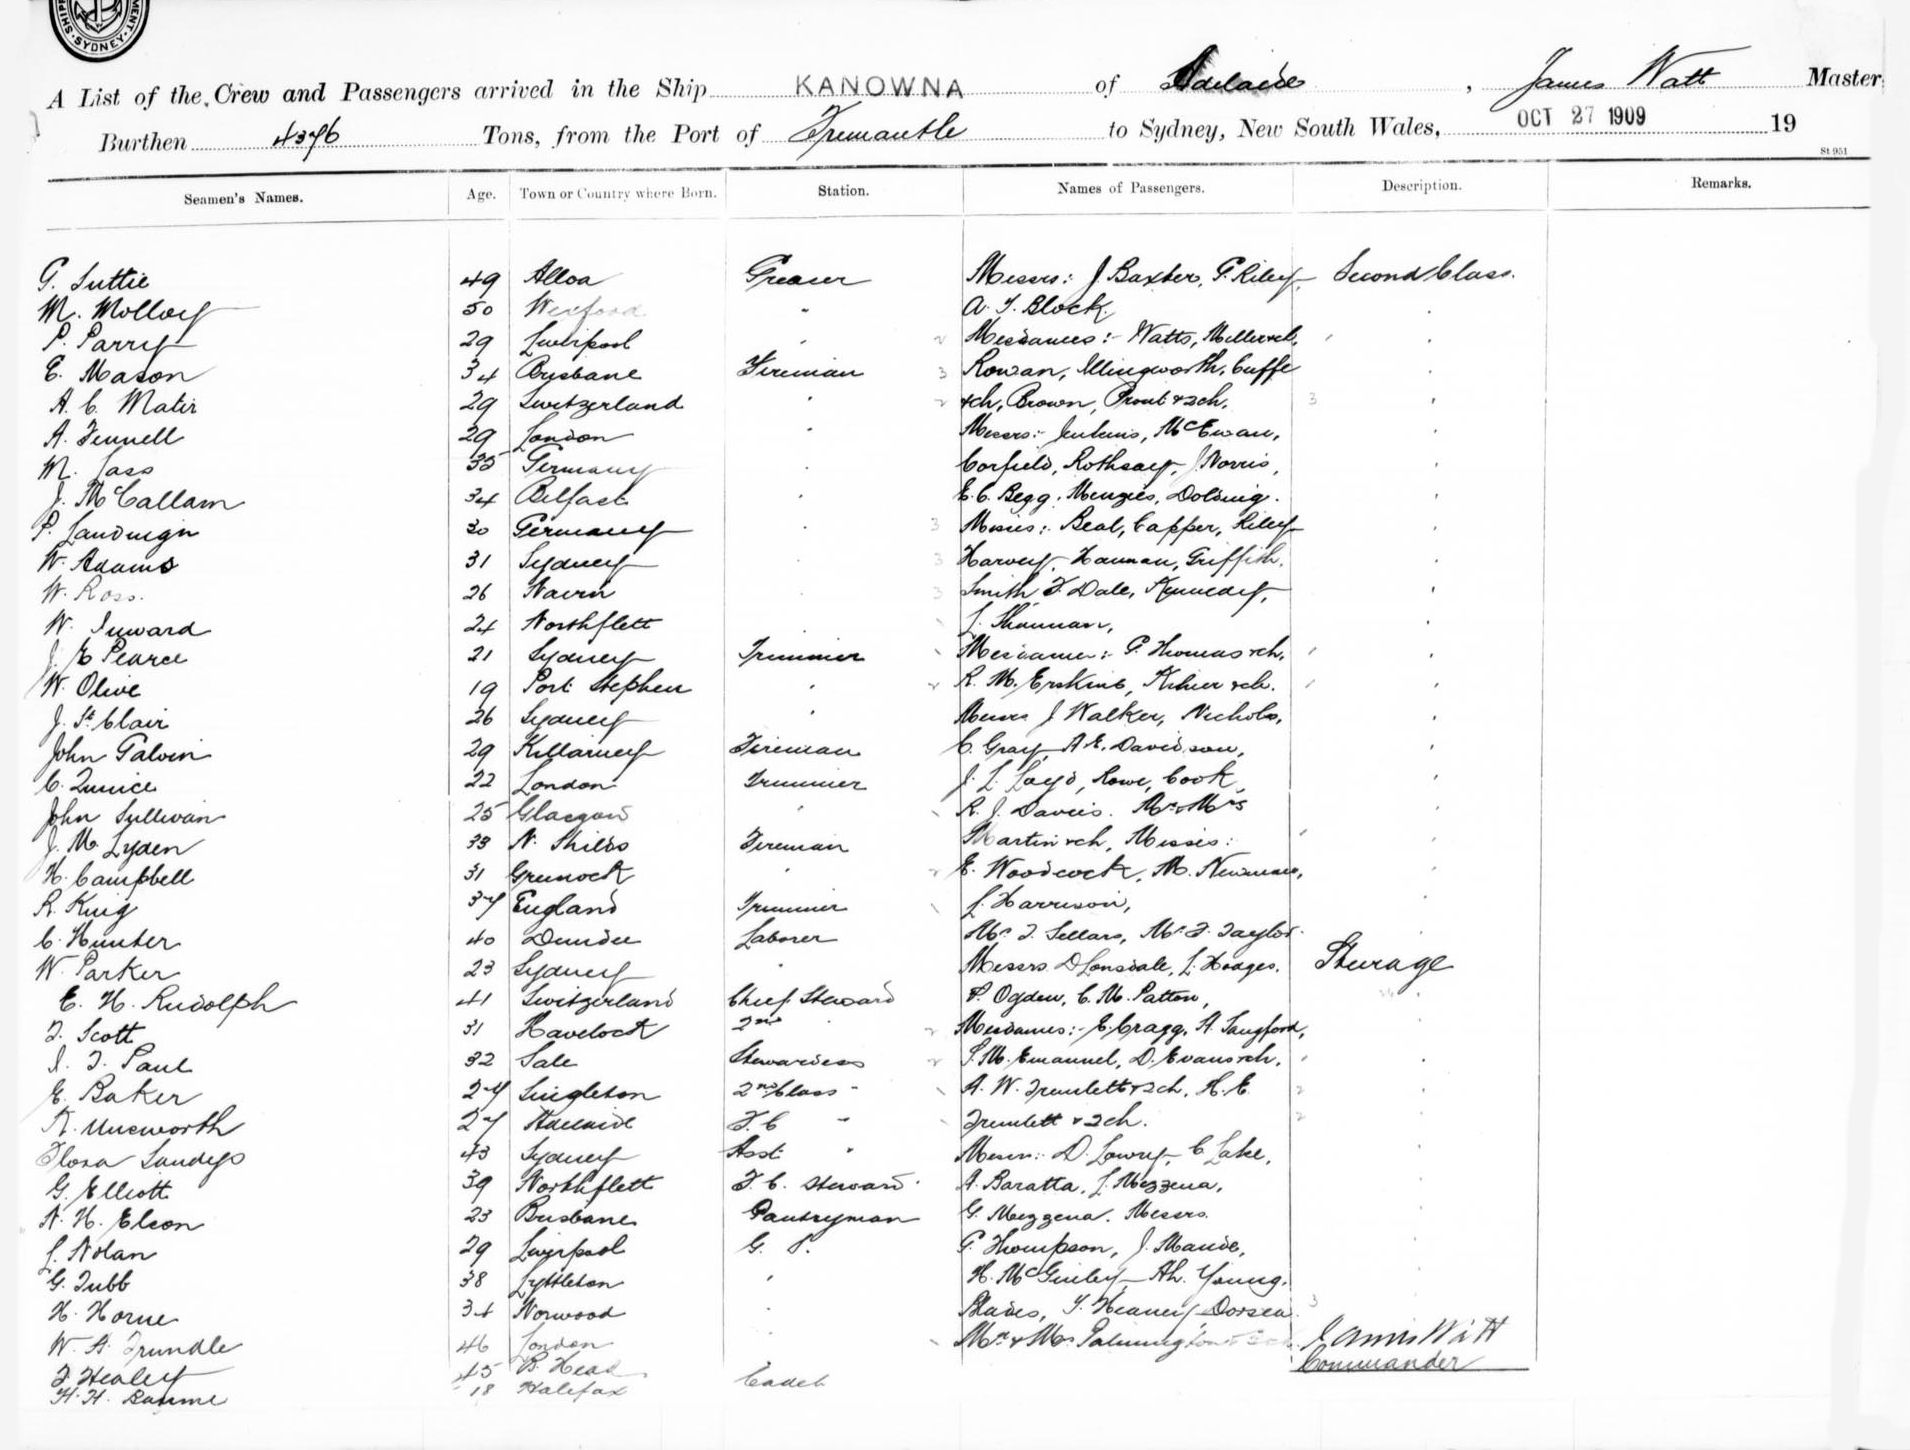 SHIPP MENT. SYDNEY.
A List of the Crew and Passengers arrived in the Ship KANOWNA of Adelaide, James Watt Master
Burthen 4376 Tons, from the Port of Fremantle to Sydney, New South Wales, OCT 27 1909 19
St 951
Seamen's Names. Age. Town or Country where Born. Station. Names of Passengers. Description. Remarks.
G. Suttie 49 Alloa Greaser Messrs: J. Baxter, G. Riley, Second Class.
M. Molloy 50 Wexford " A. T. Block.
P. Parry 29 Liverpool " Mesdames:- Watts, Miller & ch,
E. Mason 34 Brisbane Fireman 3 Rowan, Illingworth, Cuffe
A. C. Matir 29 Switzerland " 2 & ch, Brown, Prout & 2ch. 3
A. Fennell 29 London " Messrs:- Jenkins, McEwan,
M. Jass 35 Germany " Corfield, Rothsay, J. Norris,
J. McCallam 34 Belfast " E. C. Begg, Menzies, Dolding.
P. 30 Germany " 3 Misses: Beal, Capper, Riley
W. Adams 31 Sydney " 3 Harvey, Hannan, Griffith,
W. Ross. 26 Nairn " 3 Smith F. Dale, Kennedy,
W. Inward 24 Northflett " L. Shannan,
J. E Pearce 21 Sydney Trimmer Mesdames:- G. Thomas & ch,
W. Olive 19 Port Stephen " R. M. Erskine, & ch.
J. St Clair 26 Sydney " Messrs J Walker, Nichols,
John Galvin 29 Killarney Fireman C. Gray, A. E. Davidson,
C. 22 London Trimmer J. L. Loyd, Rowe, Cook,
John Sullivan 25 Glasgow " R. J. Davies. Mr & Mrs
J. M. Lyden 33 N. Shilds Fireman Martin & ch, Misses:
H. Campbell 31 Greenock " E. Woodcock, M. Newman,
R. King 37 England Trimmer L. Harrison,
C. Hunter 40 Dundee Laborer Mr T. Sellars, Mr F. Taylor.
W. Parker 23 Sydney " Messrs D Lonsdale, L. Hodges, Steerage
E. H. Rudolph 41 Switzerland Chief Steward P. Ogden, C. M. Patton,
T. Scott 31 Havelock 2nd " Mesdames:- E. Cragg, A. Langford,
I. T. Paul 32 Sale Stewardess S. M. Emanuel, D. Evans & ch,
E. Baker 27 Singleton 2nd Class " A. W. Tremlett & 2ch, H. E.
K. Unsworth 27 Adelaide F. C " Tremlett & 2ch.
Flora Landeys 43 Sydney Asst " Messrs: D. Lowry, C Lake,
G. Elliott 39 Northflett F. C. Steward. A. Baratta, L. Mezzena,
A. H. Elson 23 Brisbane Pantryman G. Mezzena. Messrs.
L. Nolan 29 Liverpool G. S. G. Thompson, J. Maude,
G. Tubb 38 Lyttleton " H. McGinley, Ah. Young,
H. Horne 34 Norwood " Slades, T. Heaney, Dorsea. 3
W. A. Trundle 46 London " Mr & Mrs James Watt
F Healey 45 B. Head Commander
H. H. 18 Halifax Cadet